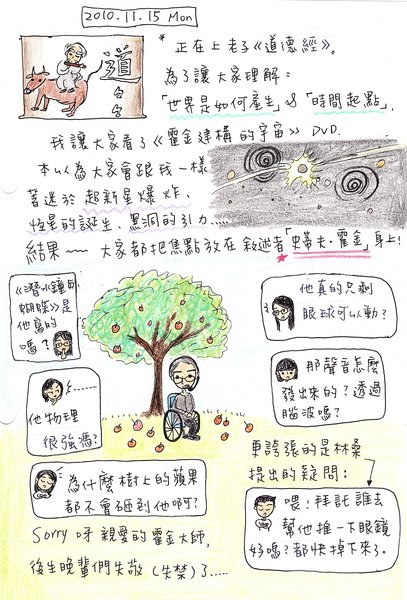 2010.11.15 Mon
道
*正在上老子《道德經》。
為了讓大家理解：
「世界是如何產生」&「時間起點」，
我讓大家看了《霍金建構的宇宙》DVD.
本以為大家會跟我一樣
著迷於超新星爆炸、
恆星的誕生、黑洞的引力.....
結果~~ 大家都把焦點放在敘述者「史蒂夫·霍金」身上!
《潛水鐘與
蝴蝶》是
他寫的
嗎?
他真的只剩
眼球可以動?
那聲音怎麼
發出來的? 透過
腦波嗎?
......
他物理
很強嗎?
為什麼樹上的蘋果
都不會砸到他啊?
更誇張的是林桑
提出的疑問:
喂! 拜託誰去
幫他推一下眼鏡
好嗎? 都快掉下來了。
Sorry 呀 親愛的霍金大師,
後生晚輩們失敬(失禁)了.....